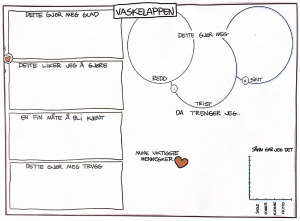 VASKELAPPEN
DETTE GJØR MEG GLAD
DETTE LIKER JEG Å GJØRE
EN FIN MÅTE Å BLI KJENT
DETTE GJØR MEG TRYGG
DETTE GJØR MEG
REDD
SINT
TRIST
DA TRENGER JEG...
MINE VIKTIGSTE
MENNESKER
SÅNN GÅR JEG DET